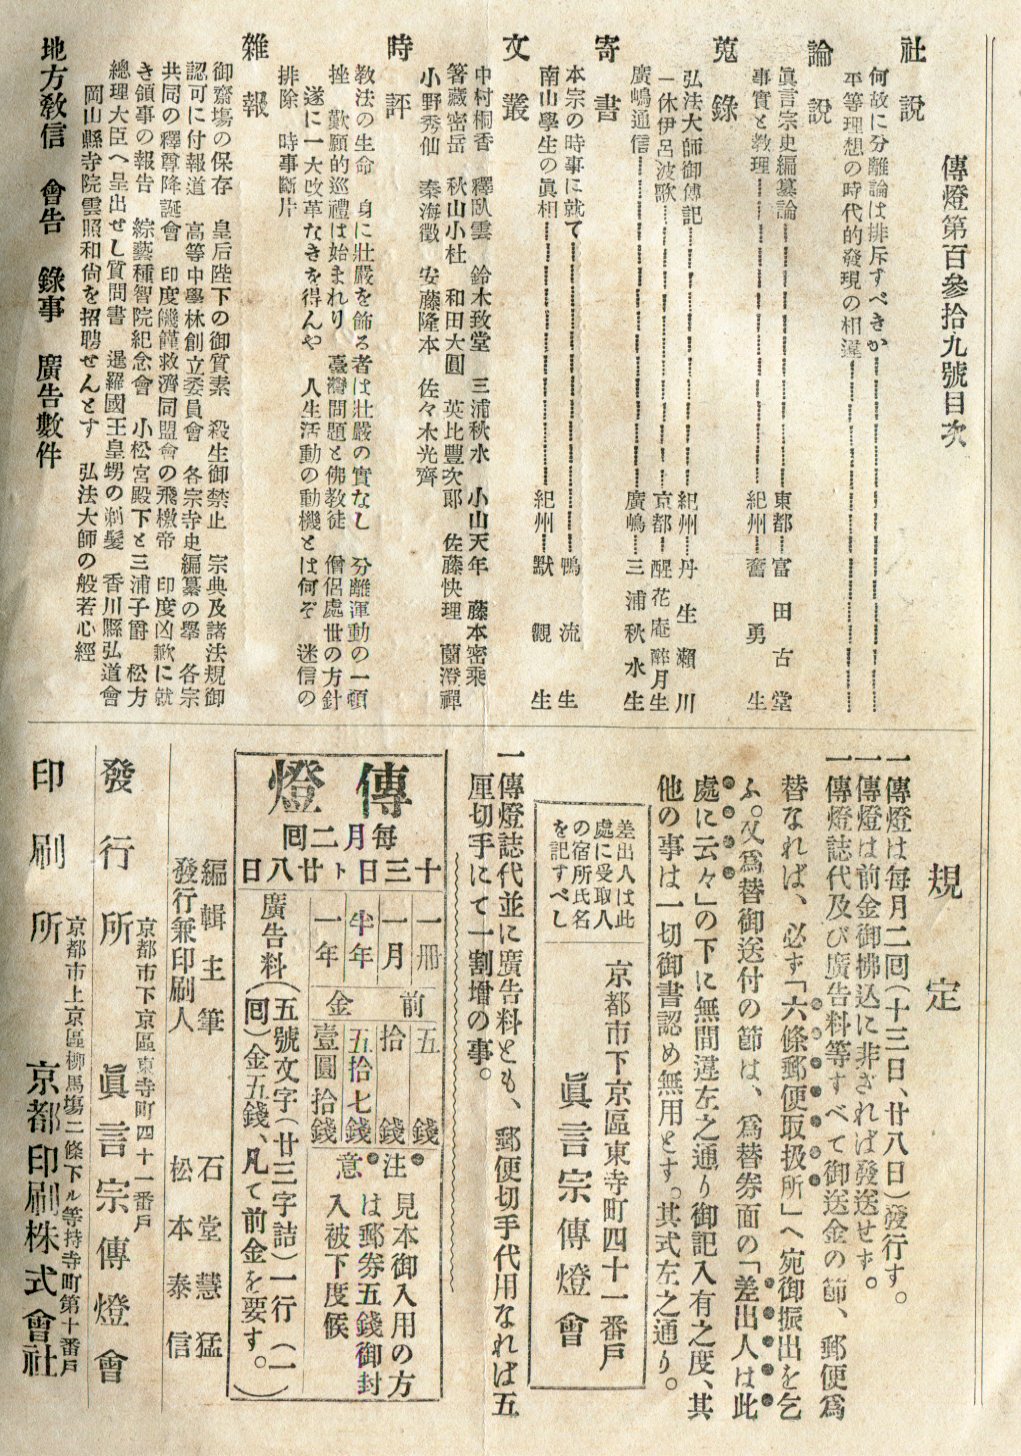 傳燈第百參拾九號目次
社説
何故に分離論は排斥すべきか
平等理想の時代的發現の相違
論説
眞言宗史編纂論……東都…富田古堂
事實と教理……紀州…奮勇生
蒐錄
弘法大師御傳記……紀州…丹生瀨川
一休伊呂波歌……京都…醒花庵醉月生
廣嶋通信……廣嶋…三浦秋水生
寄書
本宗の時事に就て……鴨流生
南山學生の眞相……紀州…默觀生
文叢
中村桐香 釋臥雲 鈴木致堂 三浦秋水 小山天年 藤本密乘
箸藏密岳 秋山小杜 和田大圓 英比豐次郎 佐藤快理 蘭澄禪
小野秀仙 秦海徹 安藤隆本 佐々木光齊
時評
教法の生命 身に壯嚴を飾る者は壯嚴の實なし 分離運動の一頓
挫 歎願的巡禮は始まれり 臺灣問題と佛教徒 僧侶處世の方針
遂に一大改革なきを得んや 人生活動の動機とは何ぞ 迷信の
排除 時事斷片
雜報
御齋場の保存 皇后陛下の御質素 殺生御禁止 宗典及諸法規御
認可に付報道 高等中學林創立委員會 各宗寺史編纂の擧 各宗
共同の釋尊降誕會 印度饑饉救濟同盟會の飛檄帝 印度凶歉に就
き領事の報告 綜藝種智院紀念會 小松宮殿下と三浦子爵 松方
總理大臣へ呈出せし質問書 暹羅國王皇甥の剃髮 香川縣弘道會
岡山縣寺院雲照和尙を招聘せんとす 弘法大師の般若心經
地方教信 會告 錄事 廣告數件
規定
一傳燈は每月二回(十三日、廿八日)發行す。
一傳燈は前金御拂込に非ざれば發送せず。
一傳燈誌代及び廣告料等すべて御送金の節、郵便爲
替なれば、必ず「六條郵便取扱所」へ宛御振出を乞
ふ。又爲替御送付の節は、爲替券面の「差出人は此
處に云々」の下に無間違左之通り御記入有之度、其
他の事は一切御書認め無用とす。其式左之通り。
差出人は此
處に受取人
の宿所氏名
を記すべし
京都市下京區東寺町四十一番戶
眞言宗傳燈會
一傳燈誌代並に廣告料とも、郵便切手代用なれば五
厘切手にて一割增の事。
傳燈
每月二回
十三日ト廿八日
一冊 前金 五錢
一月 拾錢
半年 五拾七錢
一年 壹圓拾錢
注意
見本御入用の方
は郵券五錢御封
入被下度候
廣告料(五號文字(廿三字詰)一行(一
回)金五錢、凡て前金を要す。)
編輯主筆 石堂慧猛
發行兼印刷人 松本泰信
京都市下京區東寺町四十一番戶
發行所 眞言宗傳燈會
京都市上京區柳馬塲二條下ル等持寺町第十番戶
印刷所 京都印刷株式會社